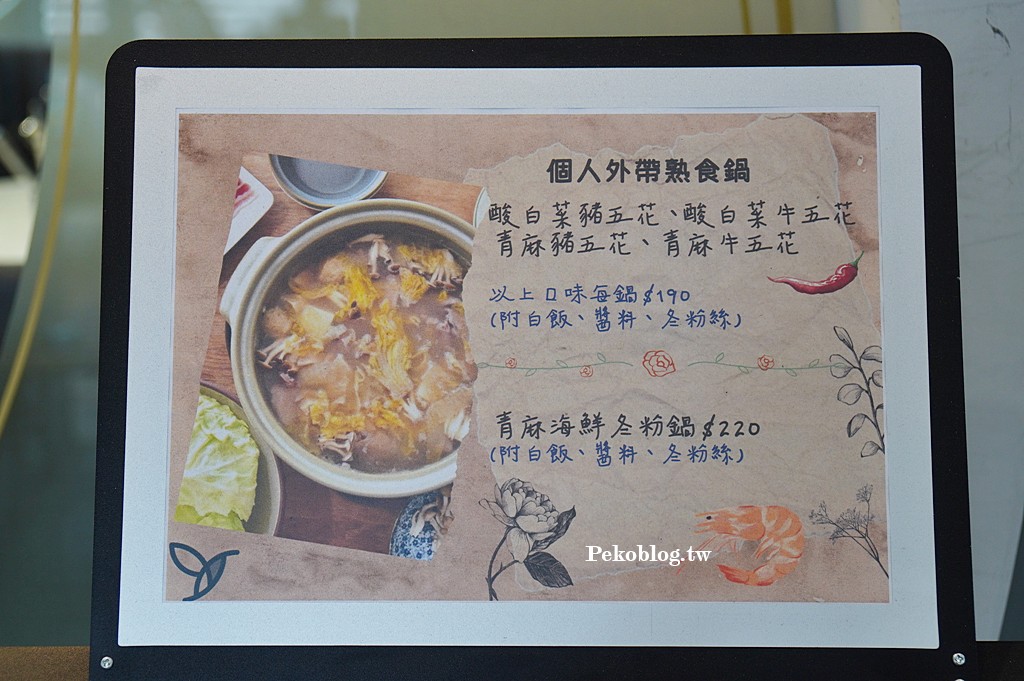 個人外帶熟食鍋
酸白菜豬五花、酸白菜牛五花
青麻豬五花、青麻牛五花
以上口味每鍋$190
(附白飯、醬料、冬粉絲)
青麻海鮮冬粉鍋$220
(附白飯、醬料、冬粉絲)
Pekoblog.tw